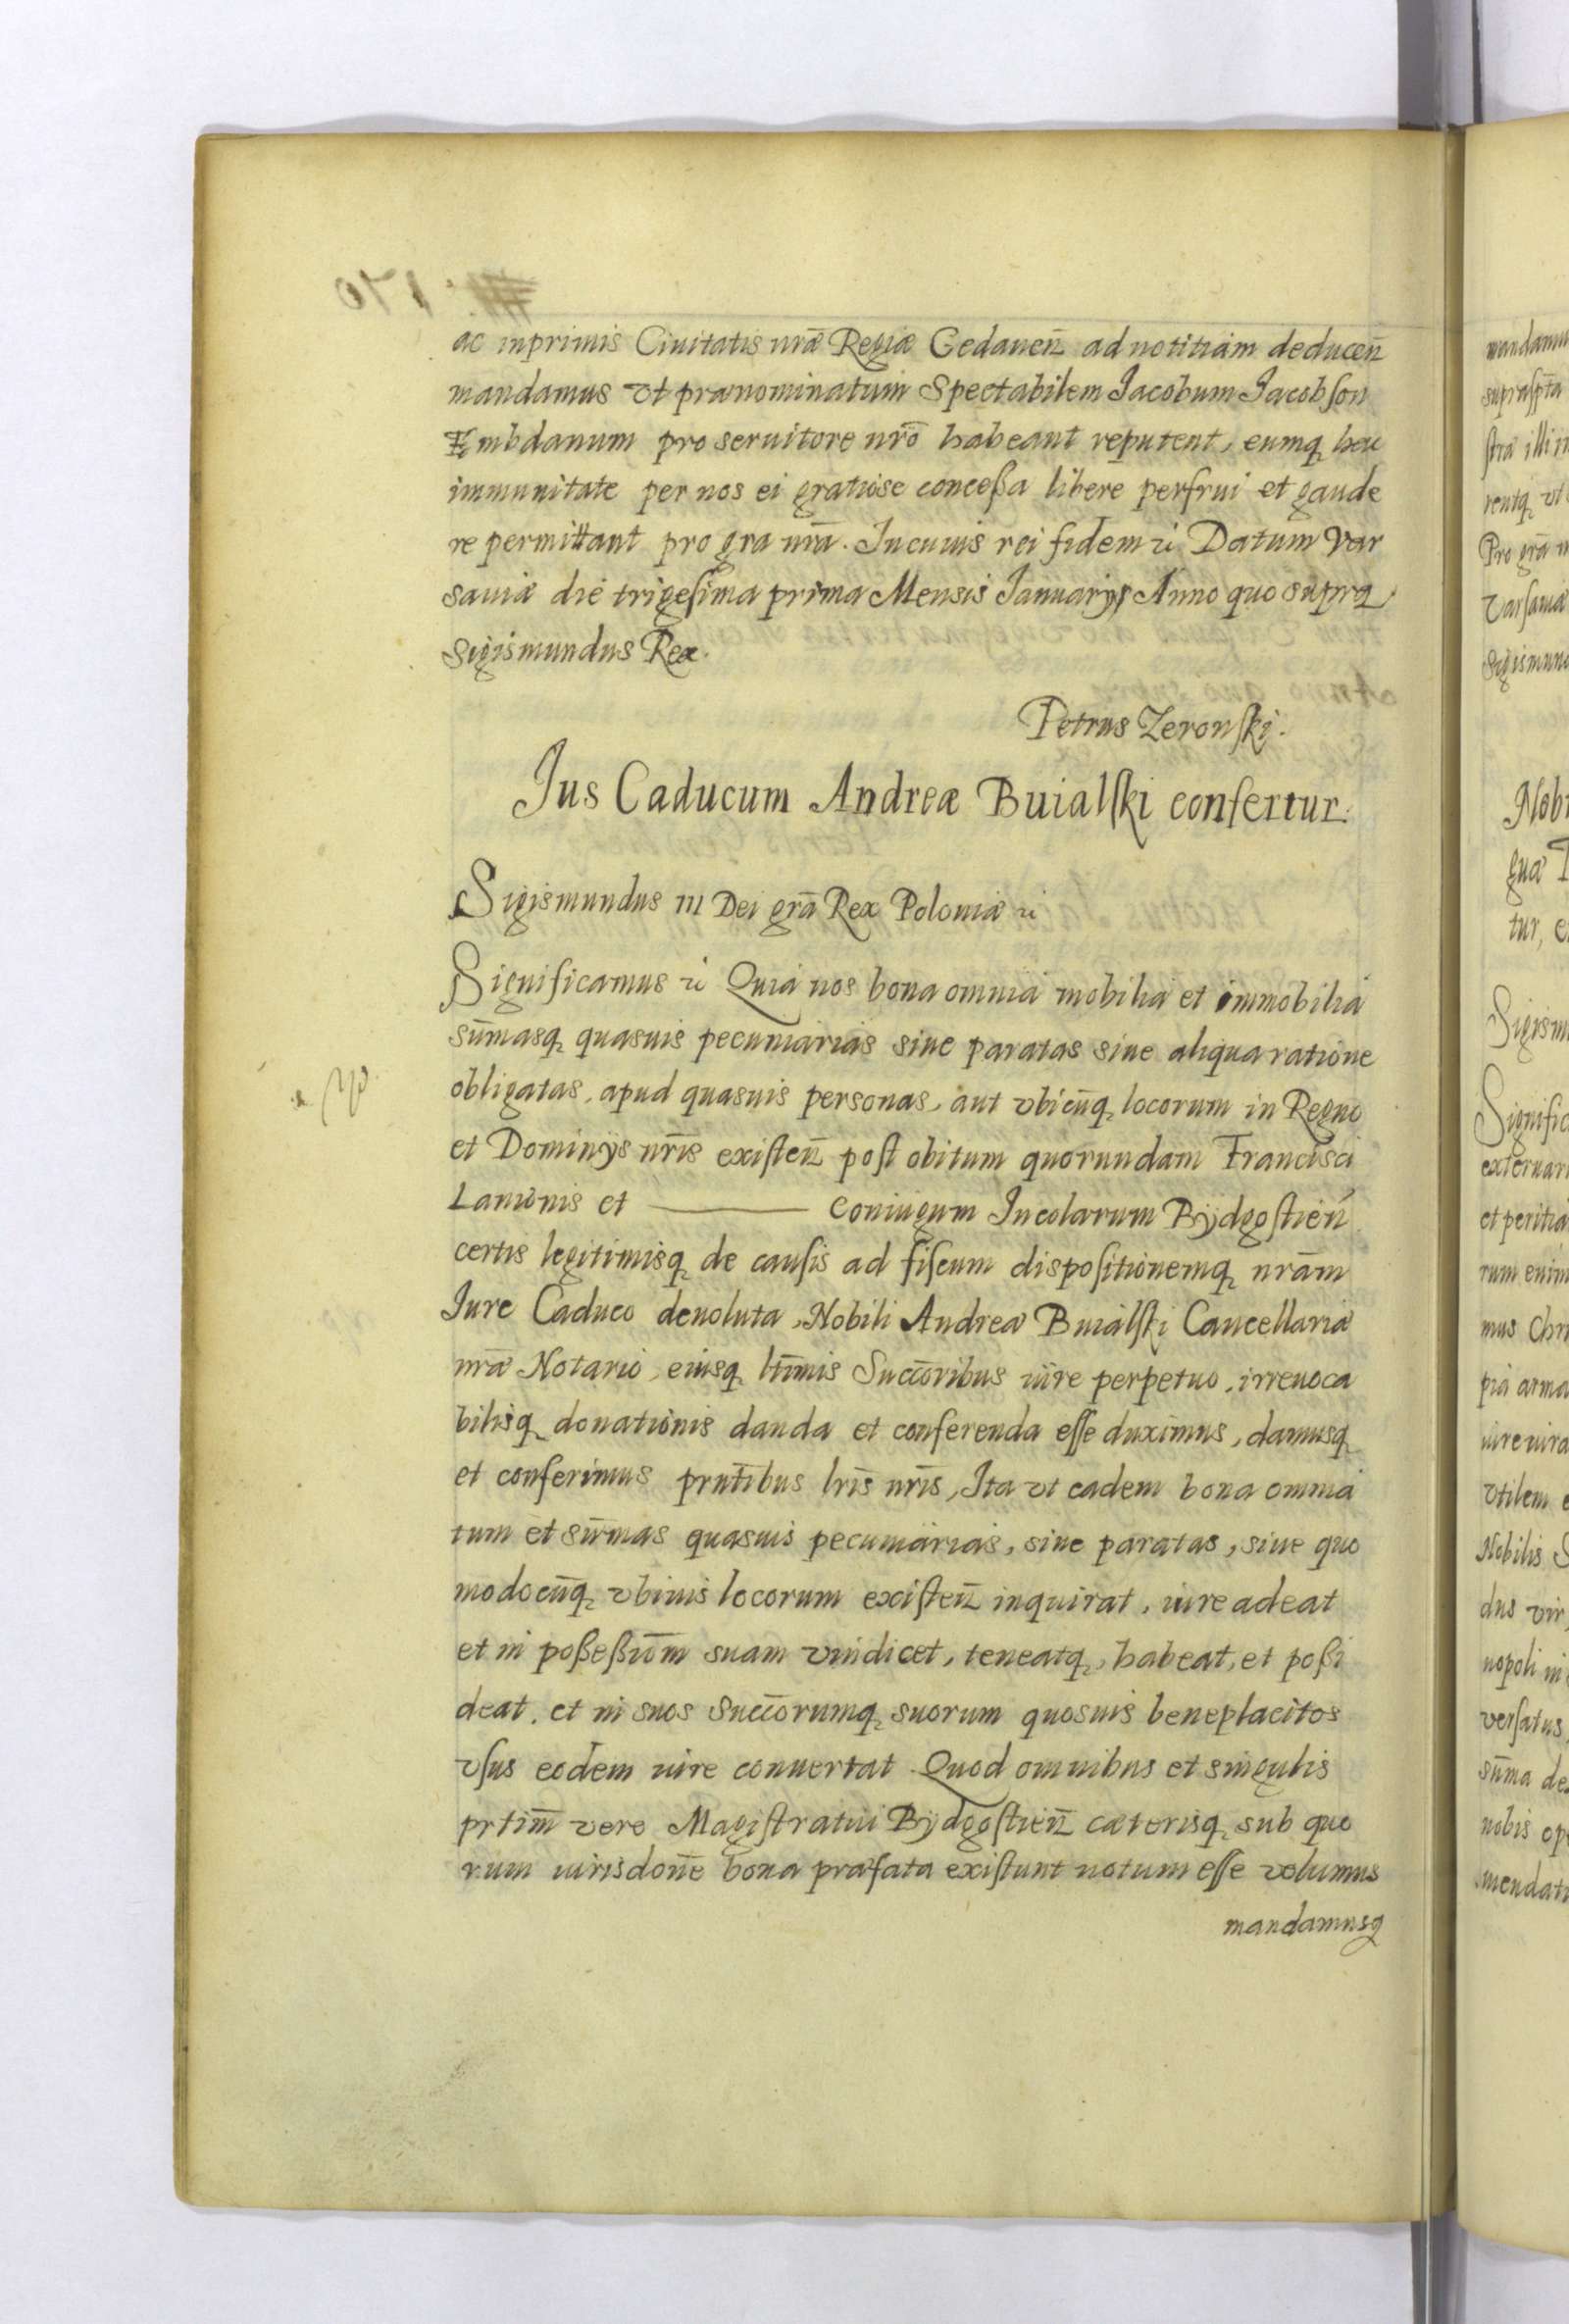 ac inprimis Ciuitatis nrae̅ Regiæ Gedanen̅ ad notitiam deducen̅
mandamus vt prænominatum Spectabilem Jacobum Jacobson
Embdanum pro seruitore nro̅ habeant reputent, eumq hac
immunitate per nos ei gratiose conceßa libere perfrui et gaude
re permittant pro gra nra̅. In cuius rei fidem &c Datum Var
sauiæ die trigesima prima Mensis Januarij Anno quo supra
Sigismundus Rex.
Petrus Zeronski.
Jus Caducum Andreæ Buialski confertur.
Sigismundus III Dei gra̅ Rex Poloniæ &c
Significamus &c Quia nos bona omnia mobilia et immobilia
sum̅asq quasuis pecuniarias siue paratas siue aliqua ratione
obligatas, apud quasuis personas, aut vbicun̅q locorum in Regno
et Dominijs nri̅s existen̅ post obitum quorundam Francisci
Lanionis et ——— coniugum Incolarum Bydgostien̅
certis legitimisq de causis ad fiscum dispositionemq nra̅m
Jure Caduco deuoluta, Nobili Andreæ Buialski Cancellariæ
nræ̅ Notario, eiusq lti̅mis Succo̅ribus iure perpetuo, irreuoca
bilisq donationis danda et conferenda esse duximus, damusq
et conferimus prnti̅bus lri̅s nri̅s, Ita vt eadem bona omnia
tum et sum̅as quasuis pecuniarias, siue paratas, siue quo
modocun̅q vbiuis locorum existen̅ inquirat, iure adeat
et in poßeßio̅m suam vindicet, teneatq, habeat, et poßi
deat, et in suos Succo̅rumq suorum quosuis beneplacitos
vsus eodem iure conuertat. Quod omnibus et singulis
prtim̅ vero Magistratui Bydgostien̅ cæterisq sub quo
rum iurisdon̅e bona præfata existunt notum esse volumus
mandamusq